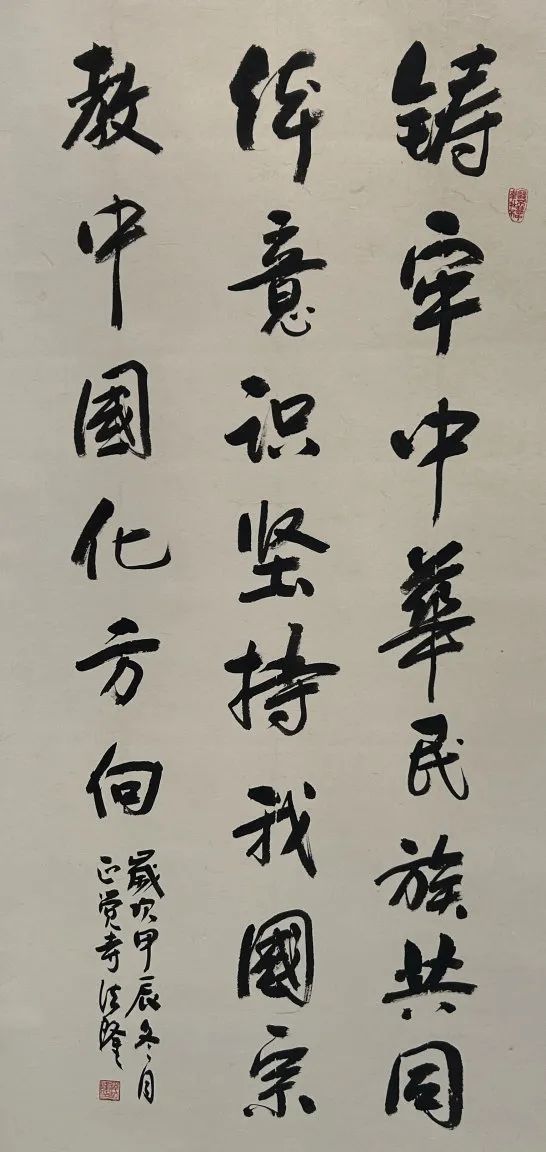 铸牢中华民族共同
体意识坚持我國宗
教中國化方向
歲次甲辰冬月
正觉寺法隆